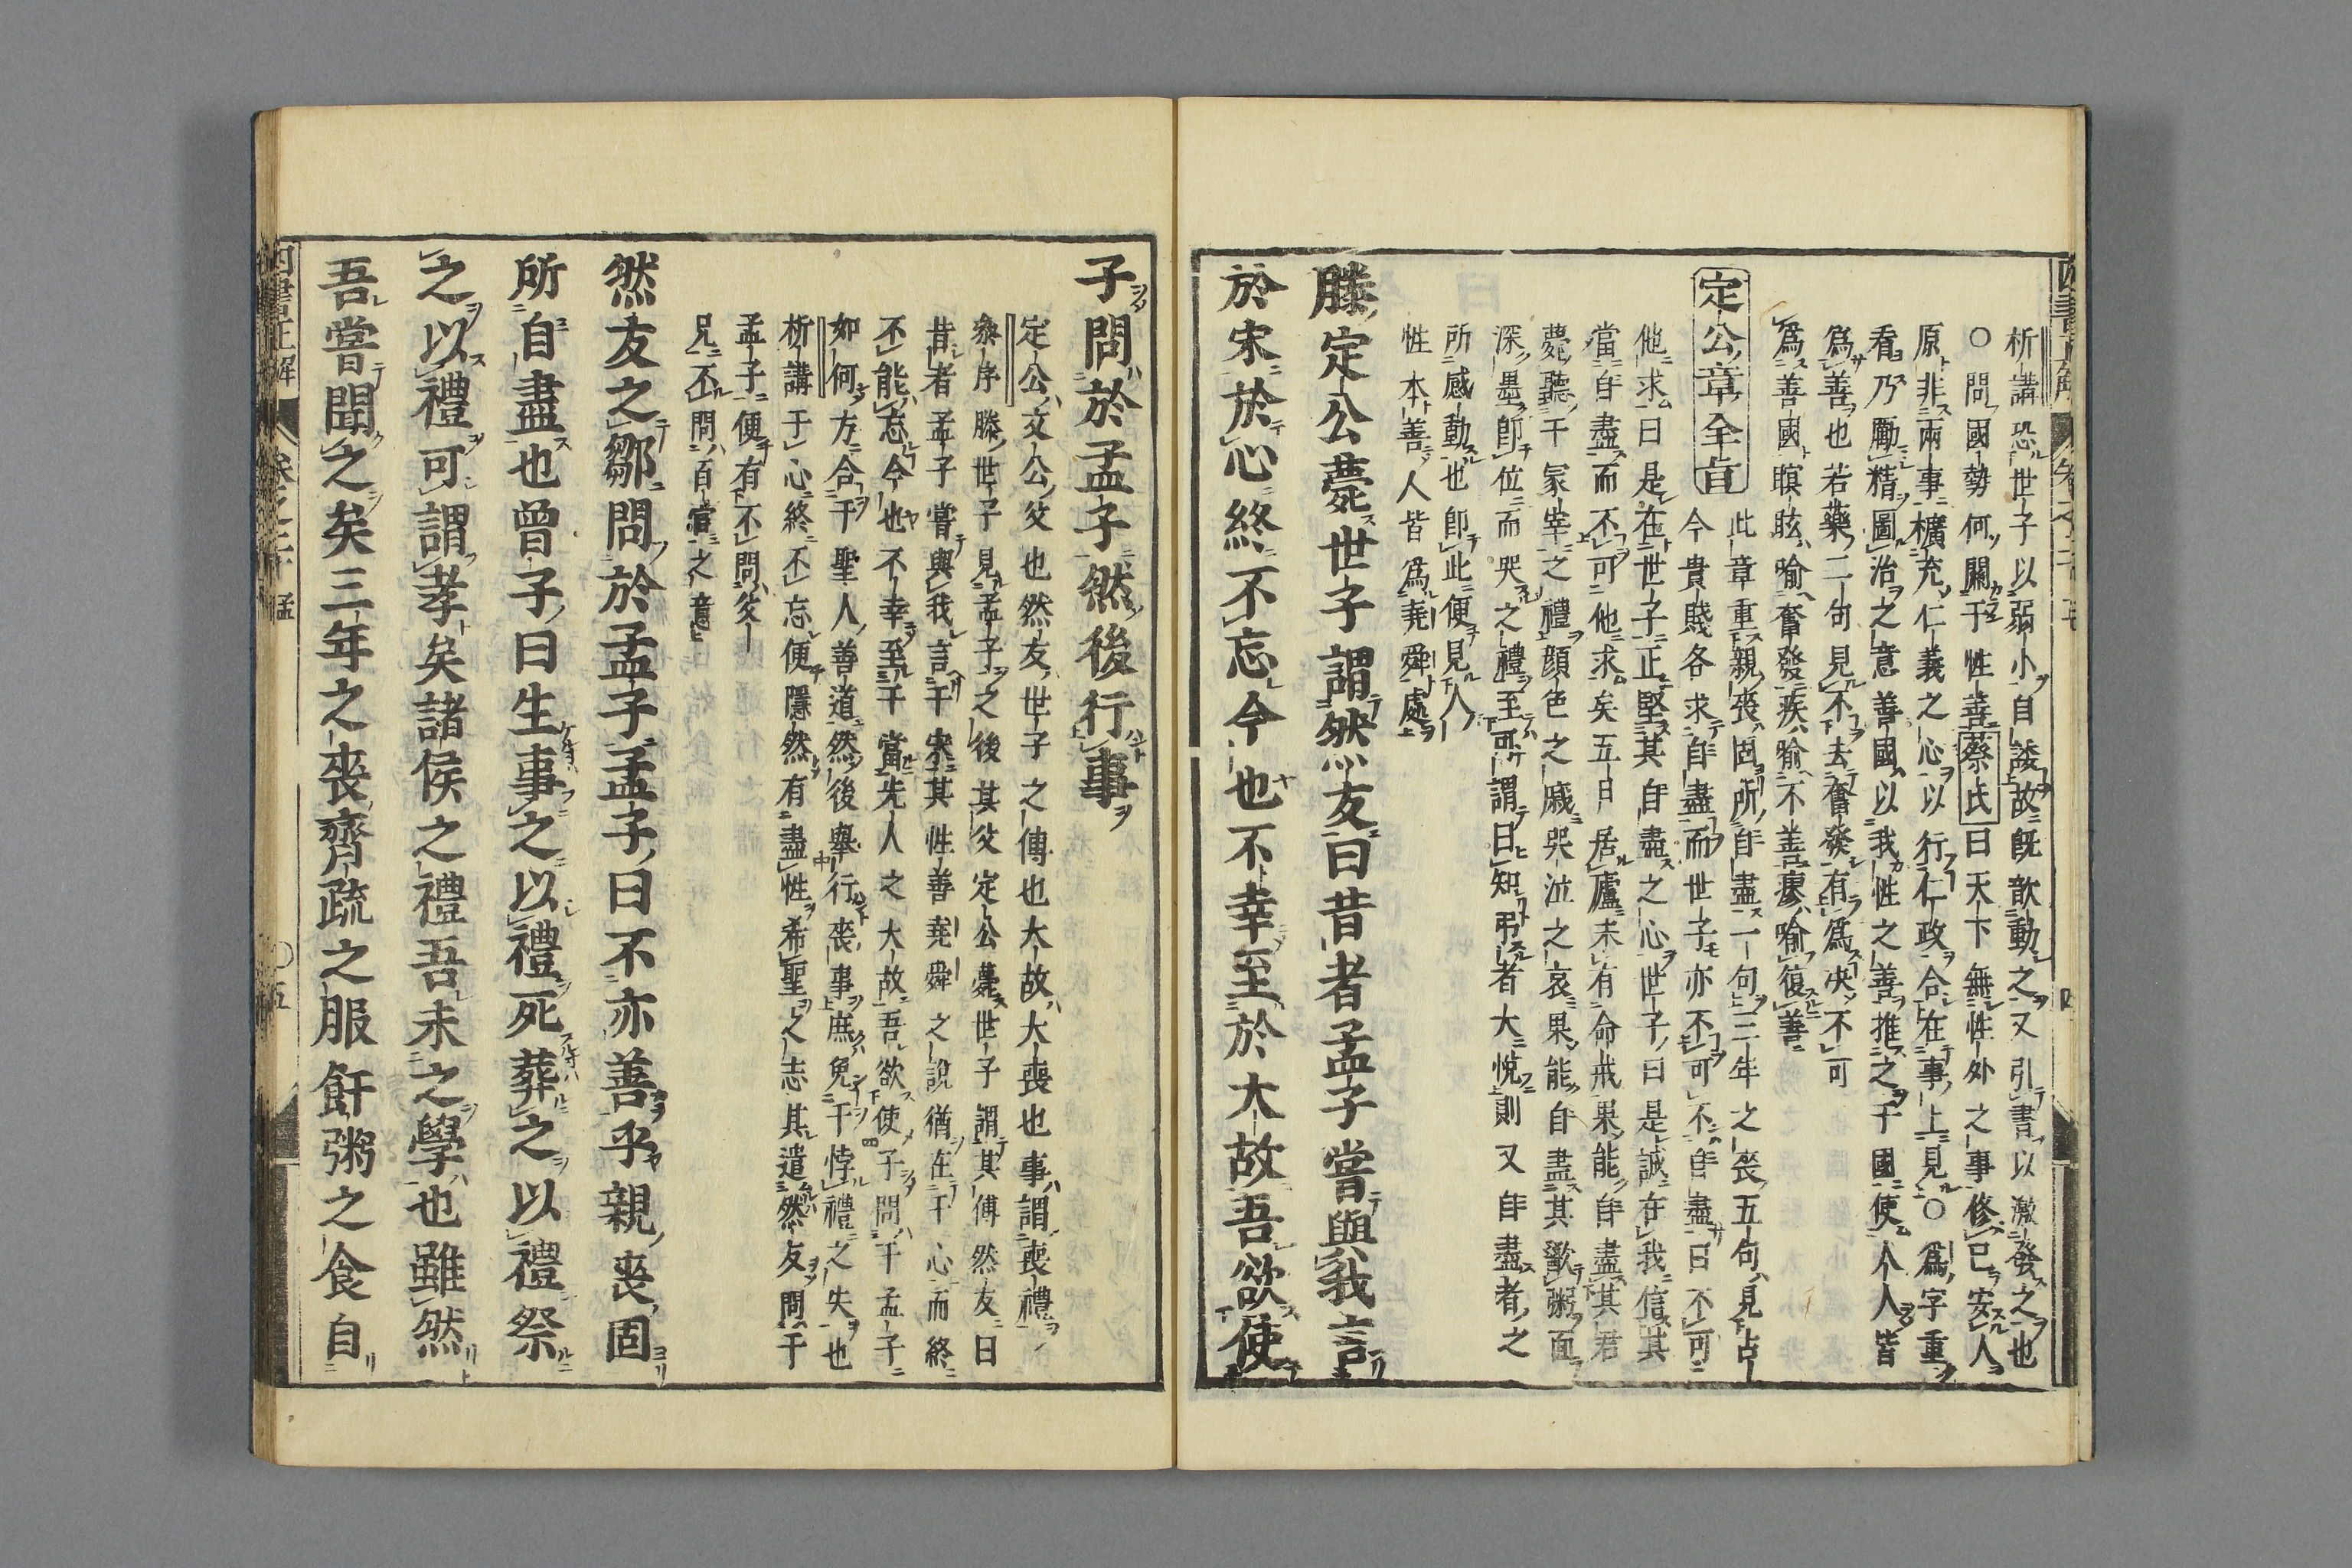 析講恐世子以弱小自諉故既歆動之又引書以激發之也
○問國勢何關于性善蔡氏曰天下無性外之事修已安人
原非兩事擴充仁義之心以行仁政合在事上見○爲字重
看乃勵精圖治之意善國以我性之善推之于國使人人皆
爲善也若藥二句見不去奮發有爲決不可
爲善國瞑眩喻奮發疾喻不善瘳喻復善
定公章全旨
此章重親喪固所自盡一句三年之喪五句見古
今貴賤各求自盡而世子亦不可不自盡曰不可
他求曰是在世子正堅其自盡之心世子曰是誠在我信其
當自盡而不可他求矣五月居廬未有命戒果能自盡其君
薨聽于冢宰之禮顔色之戚哭泣之哀果能自盡其歠粥面
深墨卽位而哭之禮至可謂曰知弔者大悅則又自盡者之
所感動也卽此便見人
性本善人皆爲堯舜處
滕定公薨世子謂然友曰昔者孟子嘗與我言
於宋於心終不忘今也不幸至於大故吾欲使
子問於孟子然後行事
定公文公父也然友世子之傅也大故大喪也事謂喪禮
叅序滕世子見孟子之後其父定公薨世子謂其傅然友曰
昔者孟子嘗與我言于宋其性善堯舜之說猶在于心而終
不能忘今也不幸至于當先人之大故吾欲使子問于孟子
如何方合于聖人善道然後舉行喪事庶免于悖禮之失也
析講于心終不忘便隱然有盡性希聖之志其遣然友問于
孟子便有不問父
兄不問百官之意
然友之鄒問於孟子孟子曰不亦善乎親喪固
所自盡也曾子曰生事之以禮死葬之以禮祭
之以禮可謂孝矣諸侯之禮吾未之學也雖然
吾嘗聞之矣三年之喪齊疏之服飦粥之食自
四書正解
卷之二十
孟
○五